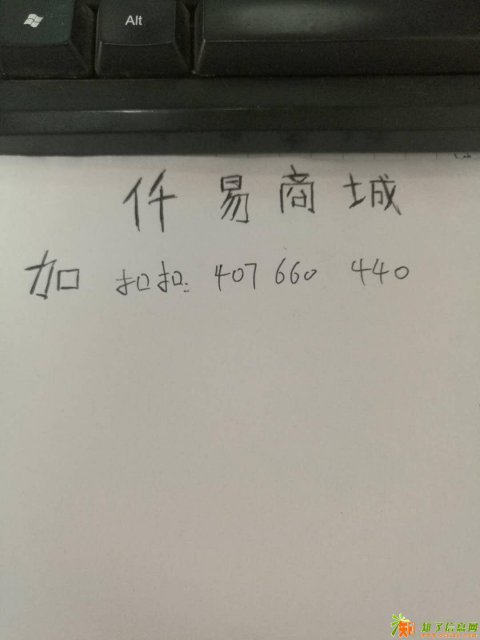 Alt
仟易商城
加 扣扣: 407 660 440
知了信息网